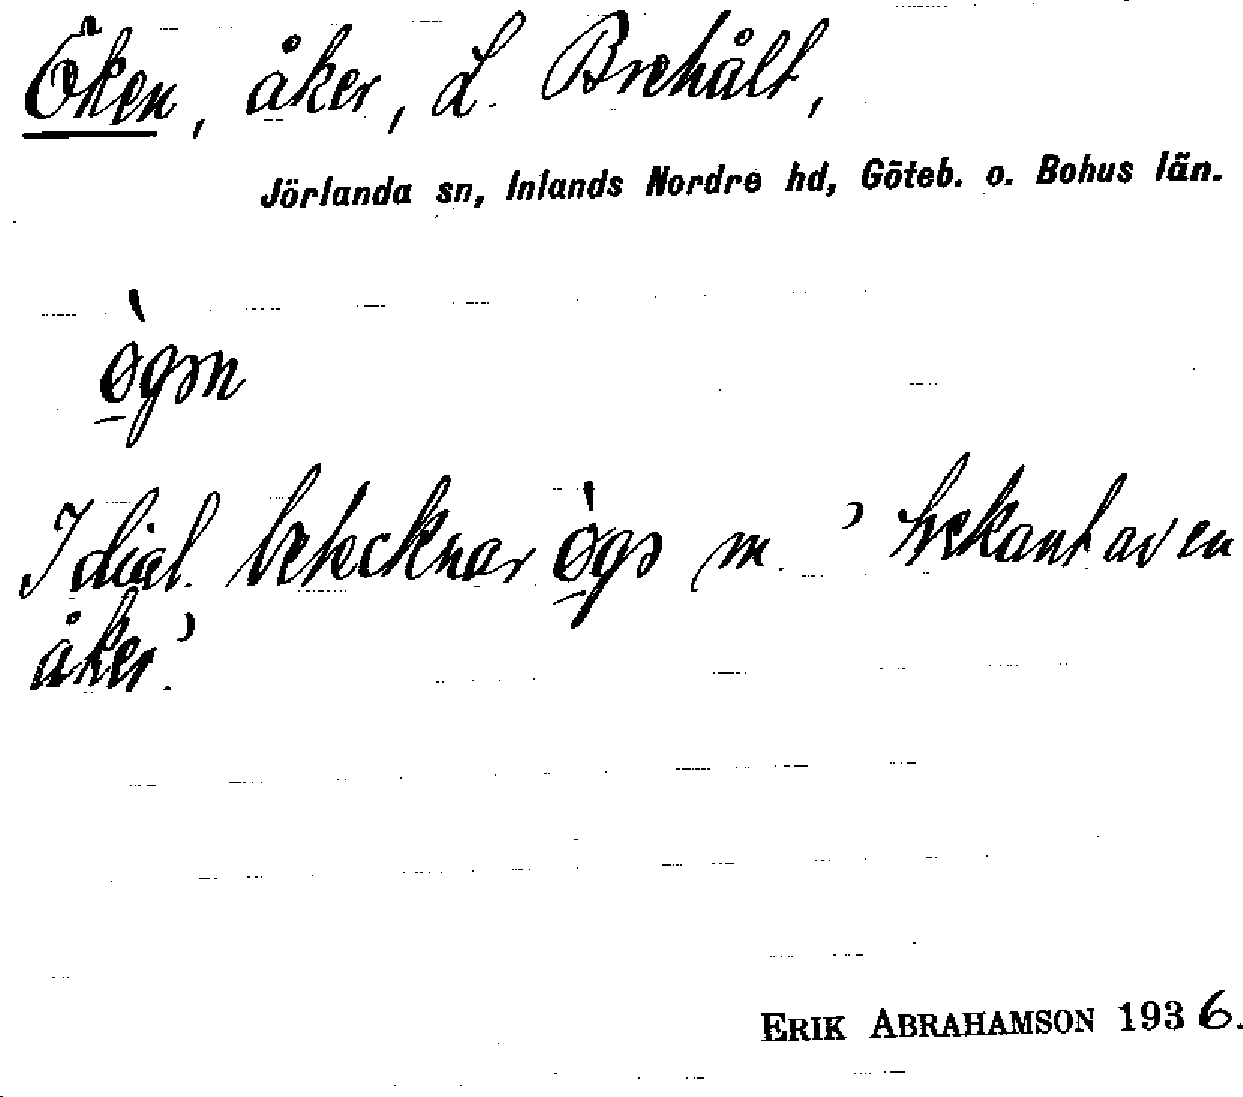 Öken, åker, L. Brehålt,
Jörlanda sn, Inlands Nordre hd, Göteb. o. Bohus län.
ò̱gən
I dial. betecknar ò̱gə m. ’trekant av en
åker’.
ERIK ABRAHAMSON 1936.